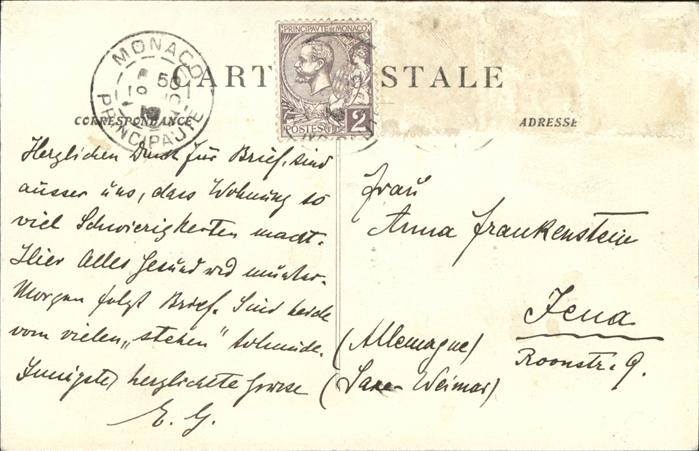 MONACO
PRINCIPAUTÉ
PRINCIPAUTÉ DE MONACO
POSTES
2
CARTE POSTALE
CORRESPONDANCE
ADRESSE
Herzlichen Dank für Brief, sind
ausser uns, dass Wohnung so
viel Schwierigkeiten macht.
Hier Alles Gesund und munter.
Morgen folgt Brief. Sind beide
vom vielen „stehen" todmüde.
Innigste herzlichste Grüsse
E. G.
Frau
Anna Frankenstein
Jena
Roonstr. 9.
(Allemagne)
(Saxe-Weimar)